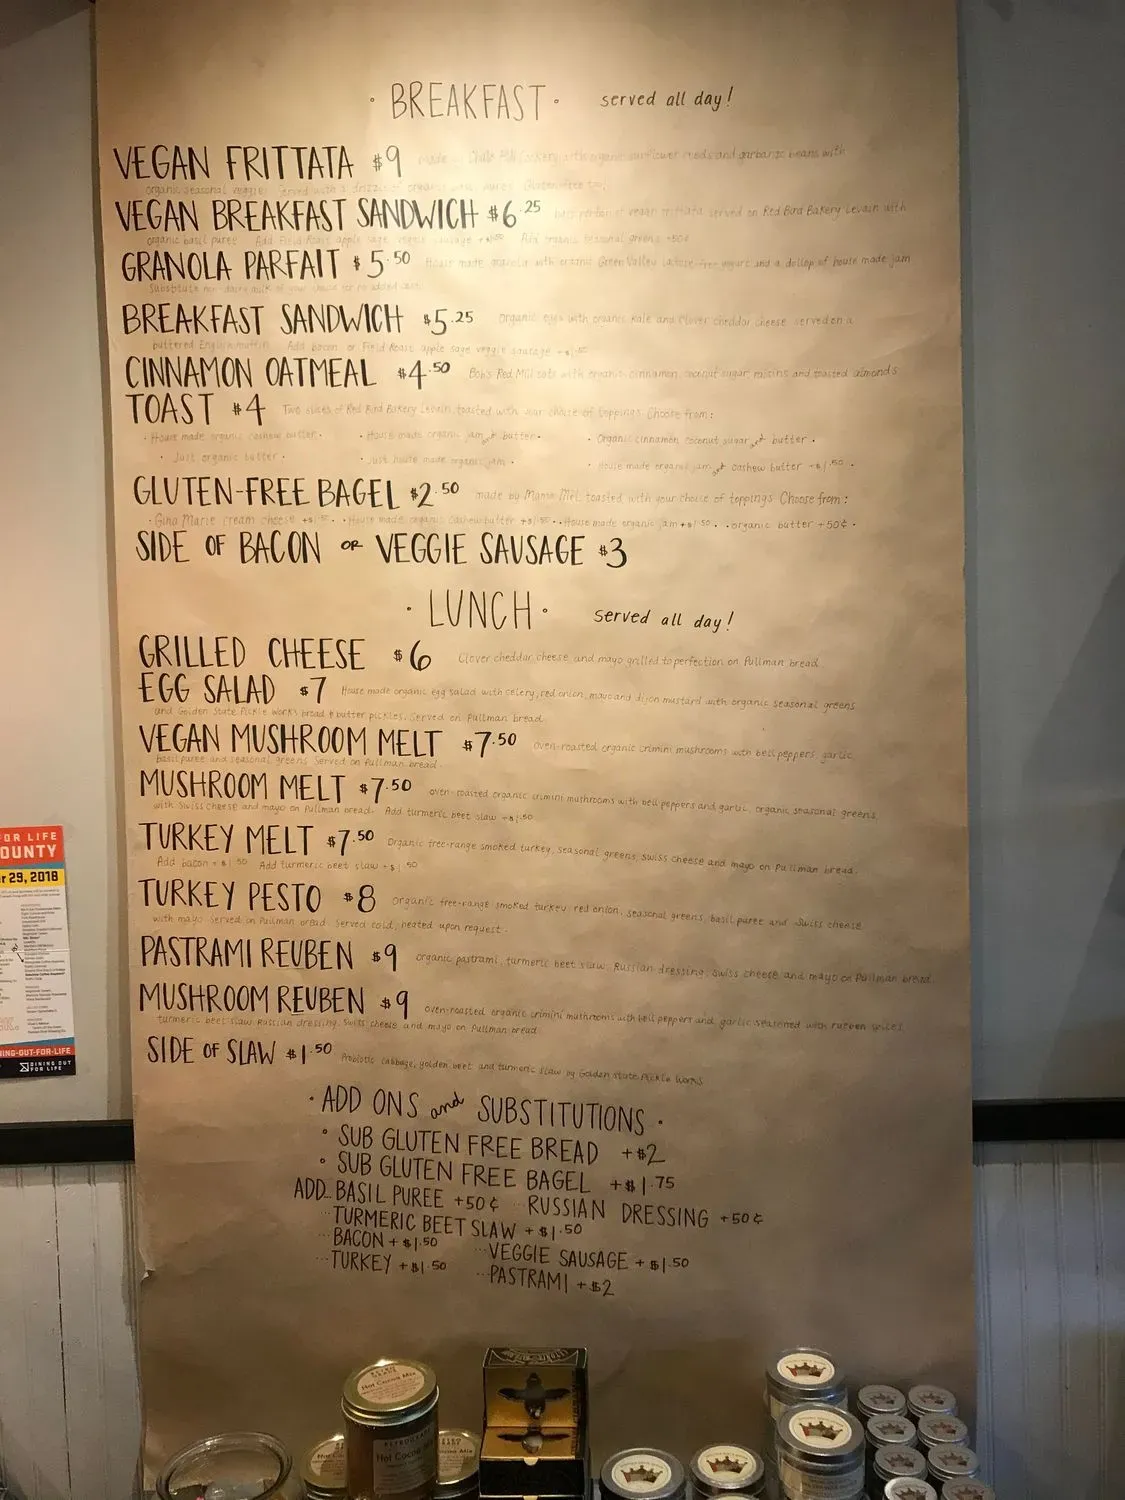 · BREAKFAST · served all day!
VEGAN FRITTATA $9 made with organic sunflower seeds and garbanzo beans with
organic seasonal veggies. Served with a drizzle of organic Gluten-free too.
VEGAN BREAKFAST SANDWICH $6.25 portion of vegan frittata served on Red Bird Bakery Levain with
organic basil puree Add Field Roast apple sage veggie sausage +$1.50 Add organic seasonal greens +50¢
GRANOLA PARFAIT $5.50 House made granola with organic Green Valley lactose-free yogurt and a dollop of house made jam
Substitute non-dairy milk of your choice for no added cost.
BREAKFAST SANDWICH $5.25 Organic eggs with organic kale and Clover cheddar cheese served on a
buttered English muffin Add bacon or Field Roast apple sage veggie sausage +$1.50
CINNAMON OATMEAL $4.50 Bob's Red Mill oats with organic cinnamon, coconut sugar, raisins and toasted almonds
TOAST $4 Two slices of Red Bird Bakery Levain toasted with your choice of toppings. Choose from:
· House made organic cashew butter · · House made organic jam and butter · · Organic cinnamon coconut sugar and butter ·
· Just organic butter · · Just house made organic jam · · House made organic jam and cashew butter +$1.50 ·
GLUTEN-FREE BAGEL $2.50 made by Mama Mel, toasted with your choice of toppings. Choose from:
· Gina Marie cream cheese +$1.50 · · House made organic cashew butter +$1.50 · · House made organic jam +$1.50 · · organic butter +50¢ ·
SIDE OF BACON OR VEGGIE SAUSAGE $3
· LUNCH · served all day!
GRILLED CHEESE $6 Clover cheddar cheese and mayo grilled to perfection on Pullman bread
EGG SALAD $7 House made organic egg salad with celery, red onion, mayo and dijon mustard with organic seasonal greens
and Golden State Pickle Works bread & butter pickles. Served on Pullman bread
VEGAN MUSHROOM MELT $7.50 oven-roasted organic crimini mushrooms with bell peppers, garlic
basil puree and seasonal greens Served on Pullman bread.
MUSHROOM MELT $7.50 oven-roasted organic crimini mushrooms with bell peppers and garlic, organic seasonal greens,
with Swiss cheese and mayo on Pullman bread. Add turmeric beet slaw +$1.50
TURKEY MELT $7.50 Organic free-range smoked turkey, seasonal greens, Swiss cheese and mayo on Pullman bread.
Add bacon +$1.50 Add turmeric beet slaw +$1.50
TURKEY PESTO $8 Organic free-range smoked turkey, red onion, seasonal greens, basil puree and Swiss cheese
with mayo. Served on Pullman bread. Served cold, heated upon request.
PASTRAMI REUBEN $9 organic pastrami, turmeric beet slaw, Russian dressing, swiss cheese and mayo on Pullman bread.
MUSHROOM REUBEN $9 oven-roasted organic crimini mushrooms with bell peppers and garlic seasoned with reuben spices
turmeric beet slaw, Russian dressing, Swiss cheese and mayo on Pullman bread
SIDE OF SLAW $1.50 Probiotic cabbage, golden beet and turmeric slaw by Golden State Pickle Works
· ADD ONS and SUBSTITUTIONS ·
· SUB GLUTEN FREE BREAD +$2
· SUB GLUTEN FREE BAGEL +$1.75
ADD...BASIL PUREE +50¢ ...RUSSIAN DRESSING +50¢
...TURMERIC BEET SLAW +$1.50
...BACON +$1.50 ...VEGGIE SAUSAGE +$1.50
...TURKEY +$1.50 ...PASTRAMI +$2
FOR LIFE
OUNTY
r 29, 2018
NING-OUT-FOR-LIFE
DINING OUT
FOR LIFE
Hot Cocoa Mix
RETROGRADE
Hot Cocoa Mix